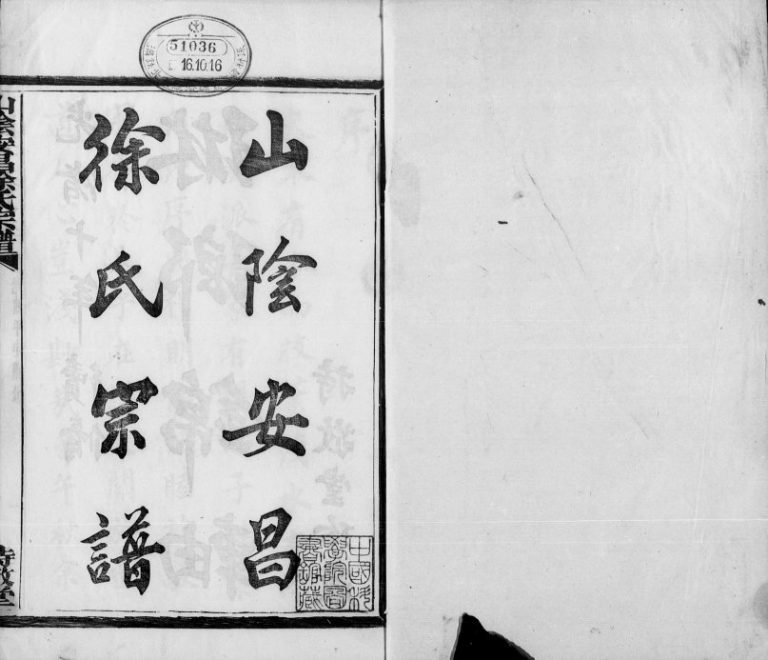 山陰安昌
徐氏宗譜
山陰安昌徐氏宗譜
51036
16.10.16